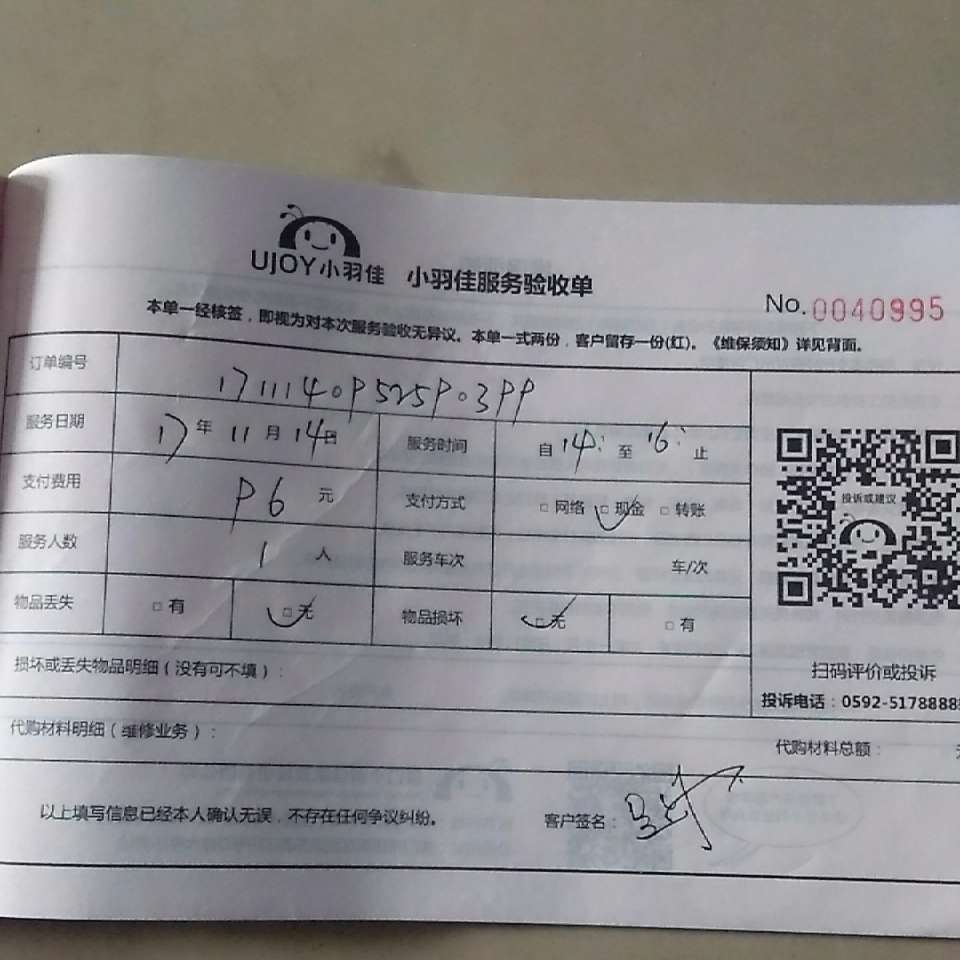 UJOY小羽佳 小羽佳服务验收单
No.0040995
本单一经核签，即视为对本次服务验收无异议。本单一式两份，客户留存一份(红)。《维保须知》详见背面。
订单编号
服务日期 17年11月14日 服务时间 自14:至16:止
支付费用 96元 支付方式 □网络 □现金 □转账
服务人数 1人 服务车次 车/次
物品丢失 □有 □无 物品损坏 □无 □有
投诉或建议
扫码评价或投诉
投诉电话：0592-5178888
损坏或丢失物品明细（没有可不填）：
代购材料明细（维修业务）：
代购材料总额：
以上填写信息已经本人确认无误，不存在任何争议纠纷。 客户签名：